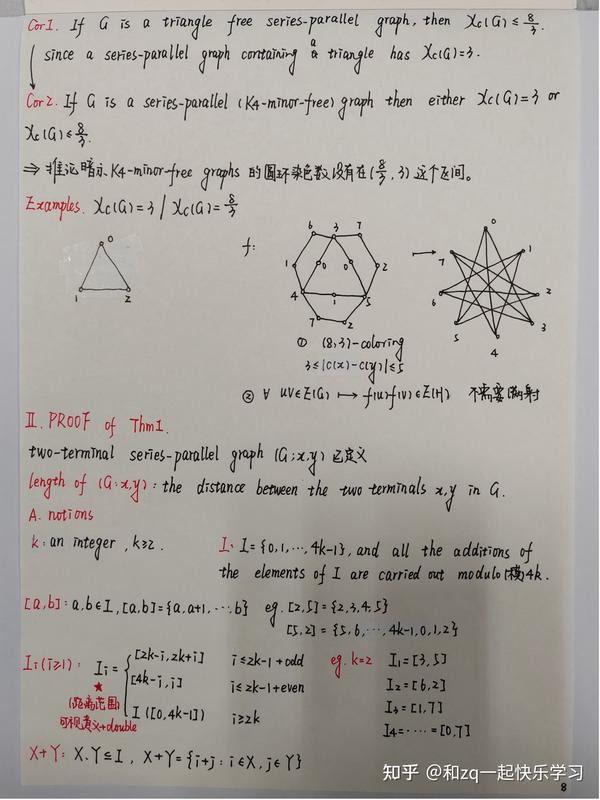 Cor1. If G is a triangle free series-parallel graph, then χc(G) ≤ 8/3.
since a series-parallel graph containing a triangle has χc(G)=3.
Cor2. If G is a series-parallel (K4-minor-free) graph then either χc(G)=3 or
χc(G) ≤ 8/3.
⇒ 推论暗示 K4-minor-free graphs 的圆环染色数没有在 (8/3, 3) 这个区间。
Examples. χc(G)=3 / χc(G)=8/3
0
1 2
f:
6 3 7
1 0 0 2
4 1 5
7 2
→
0
7 1
6 2
5 3
4
① (8,3)-coloring
3≤|c(x)-c(y)|≤5
② ∀ uv∈E(G) ↦ f(u)f(v)∈E(H) 不需要满射
II. PROOF of Thm1.
two-terminal series-parallel graph (G;x,y) 已定义
length of (G;x,y): the distance between the two terminals x,y in G.
A. notions
k: an integer, k≥2. I: I={0,1,⋯,4k-1}, and all the additions of
the elements of I are carried out modulo (模) 4k.
[a,b]: a,b∈I, [a,b]={a,a+1,⋯,b} eg. [2,5]={2,3,4,5}
[5,2]={5,6,⋯,4k-1,0,1,2}
Ii(i≥1): Ii= { [2k-i,2k+i] i≤2k-1+odd eg. k=2 I1=[3,5]
[4k-i,i] i≤2k-1+even I2=[6,2]
I ([0,4k-1]) i≥2k I3=[1,7]
★ (距离范围) I4=⋯=[0,7]
+double
X+Y: X,Y⊆I, X+Y={i+j: i∈X, j∈Y}
知乎 @和zq一起快乐学习
8